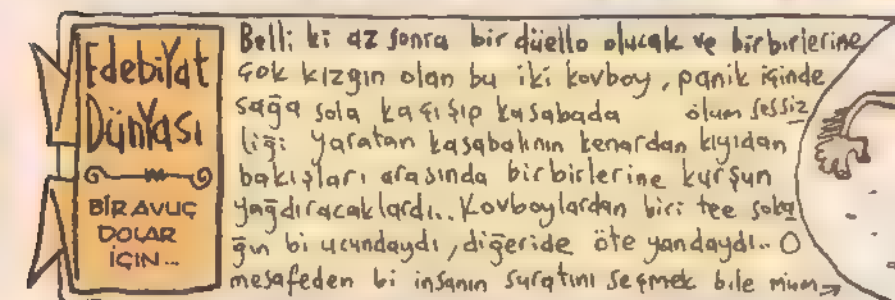 Edebiyat
Dünyası
BİR AVUÇ
DOLAR
İÇİN...
Belli ki az sonra bir düello olucak ve birbirlerine
çok kızgın olan bu iki kovboy, panik içinde
sağa sola kaçışıp kasabada ölüm sessiz
liği yaratan kasabalının kenardan kıyıdan
bakışları arasında birbirlerine kurşun
yağdıracaklardı.. Kovboylardan biri tee soka
ğın bi ucundaydı, diğeride öte yandaydı.. O
mesafeden bi insanın suratını seçmek bile müm